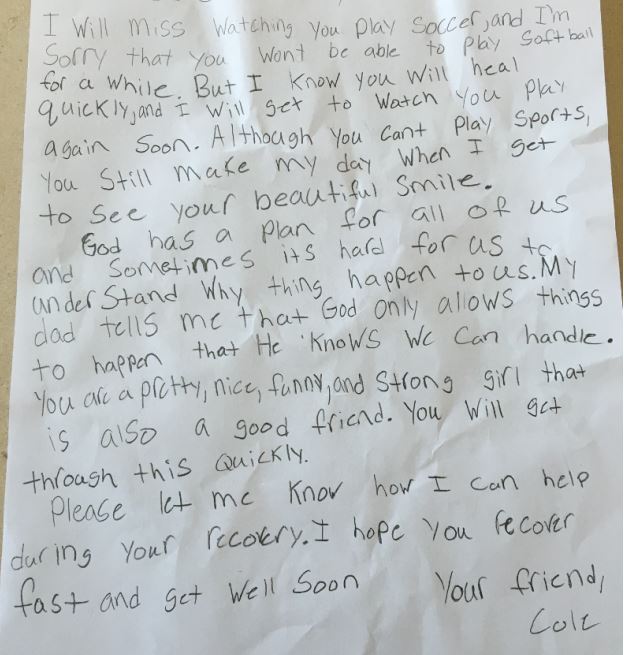 I Will Miss Watching You Play Soccer, and I'm
Sorry that you Wont be able to play Softball
for a While. But I Know you Will heal
quickly, and I Will get to Watch You Play
again Soon. Although You Cant Play Sports,
You Still make my day When I get
to See your beautiful Smile.
God has a Plan for all of us
and Sometimes its hard for us to
understand Why thing happen to us. My
dad tells me that God only allows things
to happen that He Knows We Can handle.
You are a pretty, nice, funny, and Strong girl that
is also a good friend. You Will get
through this Quickly.
Please let me Know how I Can help
during Your recovery. I hope You recover
fast and get Well Soon Your friend,
Cole